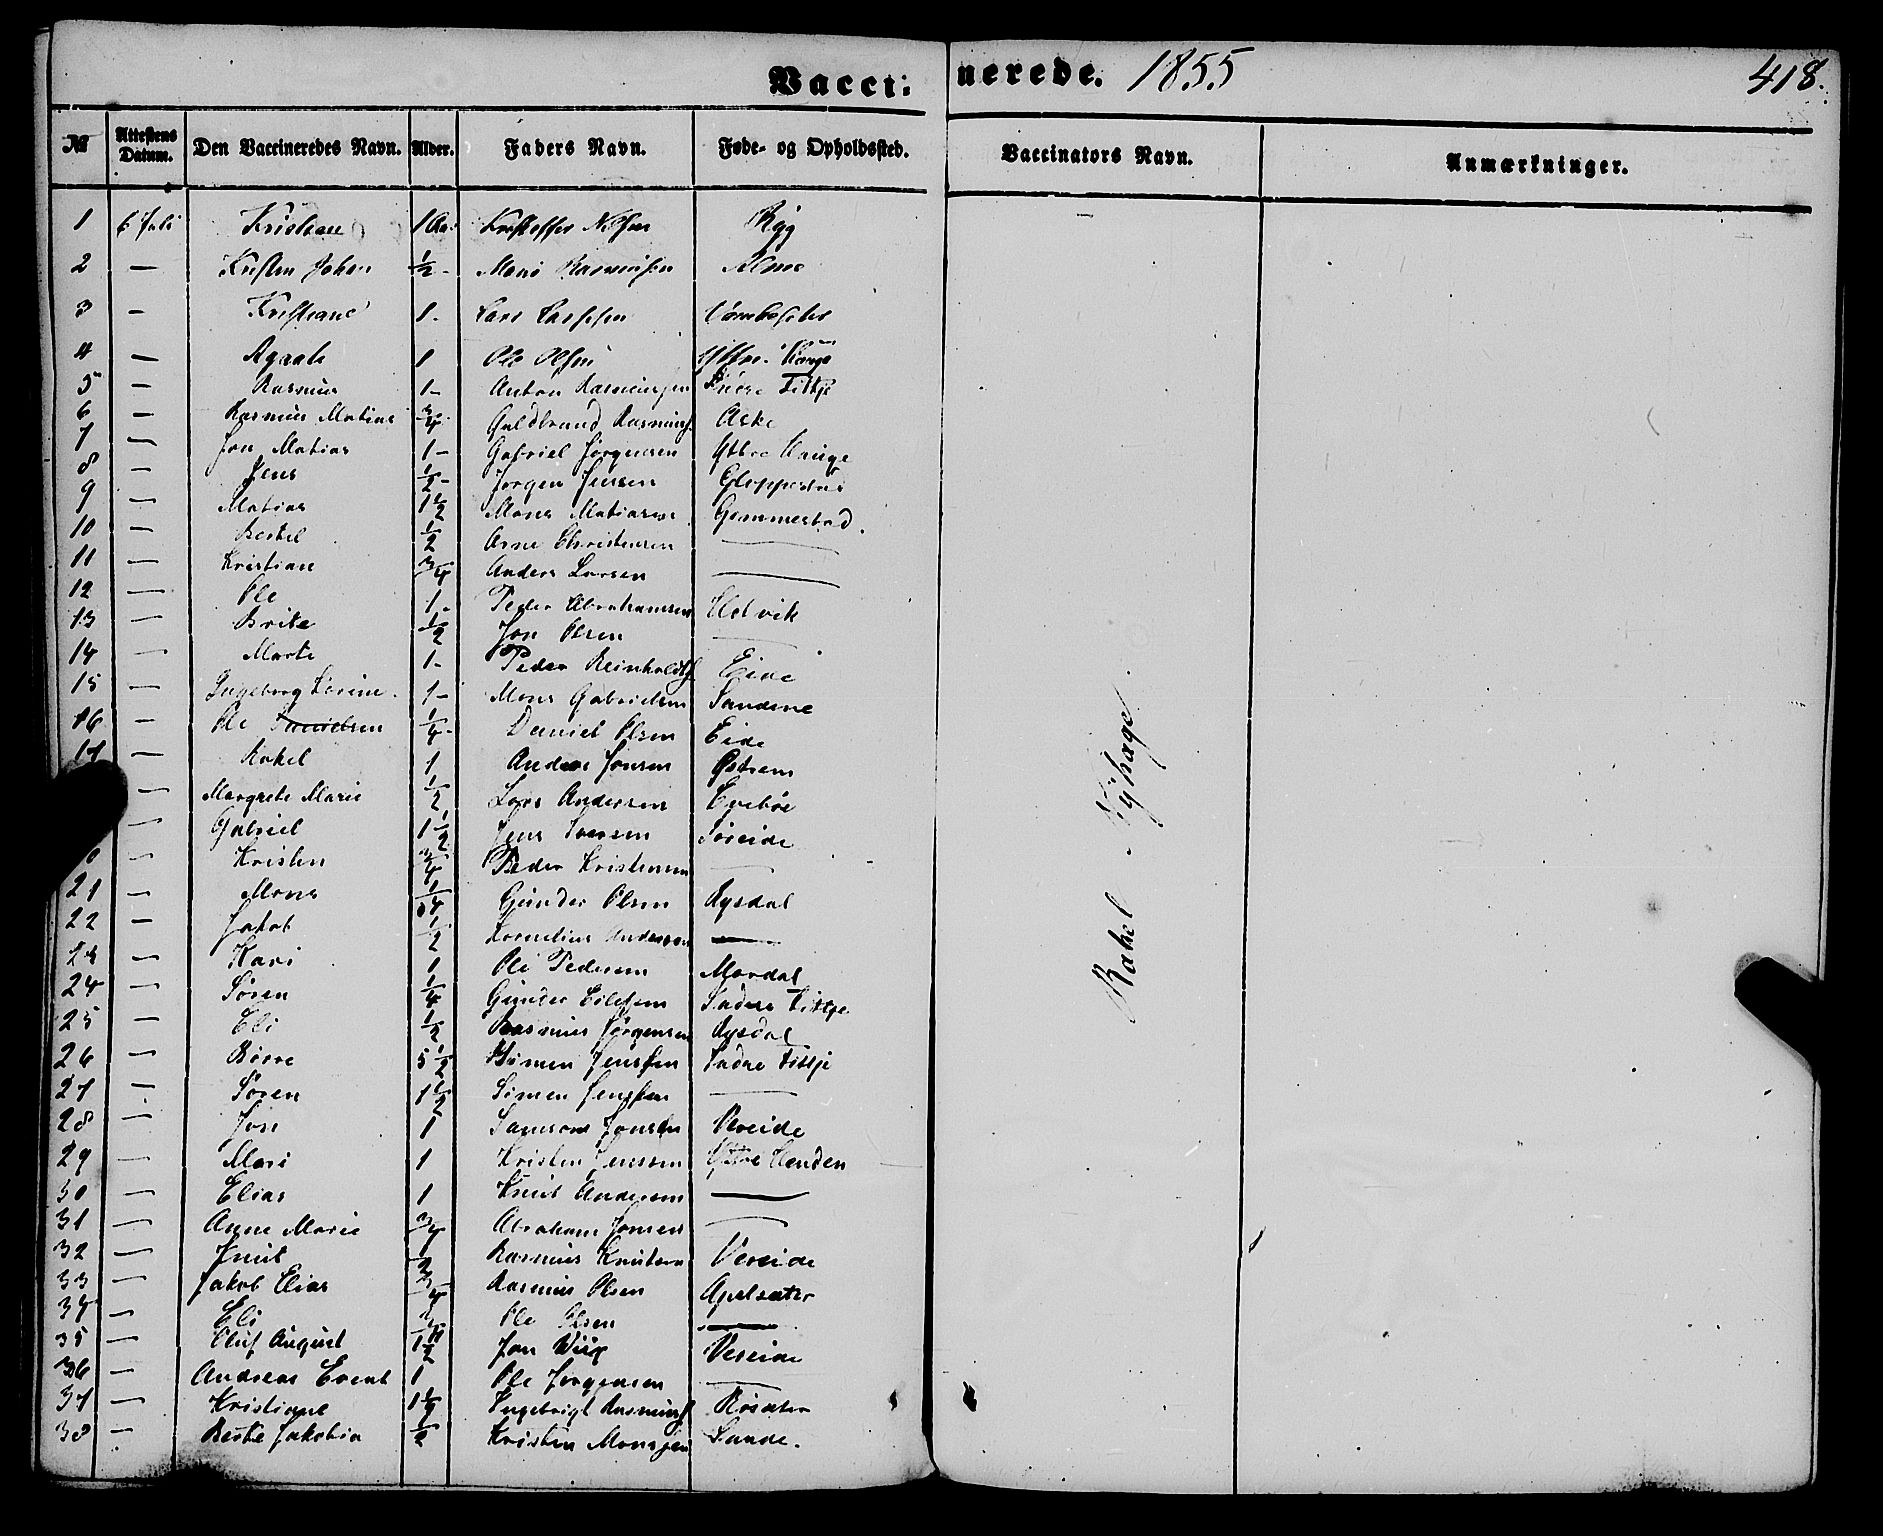 Vacci: nerede. 1855 418.
№ Attestens Datum. Den Vaccineredes Navn. Alder. Faders Navn. Føde- og Opholdssted. Vaccinators Navn. Anmærkninger.
1 6 Juli Kristiane 1 Aar Kristoffer Nilsen Rygg
2 — Kristen Johan ½ - Mons Rasmussen Alme
3 — Kristiane 1 - Lars Larssen
4 — Agaate 1 Ole Olsen Hauge
5 — Rasmus 1 - Anton Rasmussen Fitkje
6 — Rasmus Matias ¾ - Guldbrand Rasmuss. Aske
7 — Jon Matias 1 - Gabriel Jørgensen Ytbre Hauge
8 — Jens ½ - Jørgen Jensen Gloppestad
9 — Matias 1½ Mons Matiasen Gommestad.
10 — Bertel ½ Arne Christensen —
11 — Kristian ¾ Anders Larsen —
12 — Ole 1 - Peder Abrahamsen Utvik
13 — Brite ½ Jon Olsen —
14 — Marte 1 - Peder Reinholdts. Eide
15 — Ingeborg Karine 1 - Mons Gabrielsen Sandene
16 — Ole Danielsen ¼ - Daniel Olsen Eide
17 — Rakel 1 Anders Jonsen Østrem
— Margrete Marie ½ Lars Andersen Evebøe
— Gabriel 1½ Jens Larsen Søreide
— Kristen ¾ Peder Kristensen —
21 — Mons ¼ Gunder Olsen Rysdal
22 — Jakob ½ Kornelius Andersen —
23 — Kari 1 Ole Pedersen Mardal
24 — Søren ¼ Gunder Eilefsen Indre Fitkje
25 — Eli ½ Rasmus Jørgensen Rysdal
26 — Børre 5½ Simen Jenssen Indre Fitkje
27 — Søren 1½ Simen Jenssen —
28 — Jon 1 Samson Jonsen Vereide
29 — Mari 1 Kristen Jenssen Yttre Henden
30 — Elias 1 Knut Andersen —
31 — Anne Marie ¾ Abraham Jonsen —
32 — Knut ½ Rasmus Knutsen Vereide
33 — Jakob Elias ¾ Rasmus Olsen Apelsæter
34 — Eli Ole Olsen —
35 — Oluf August 1½ Jon Vereide
36 — Andreas Event 1 Ole Jørgensen —
37 — Kristiane 1½ Ingebrigt Rasmuss. Røsæter
38 — Berte Jakobia ½ Kristen Monsen Sande.
Rakel Nyhage